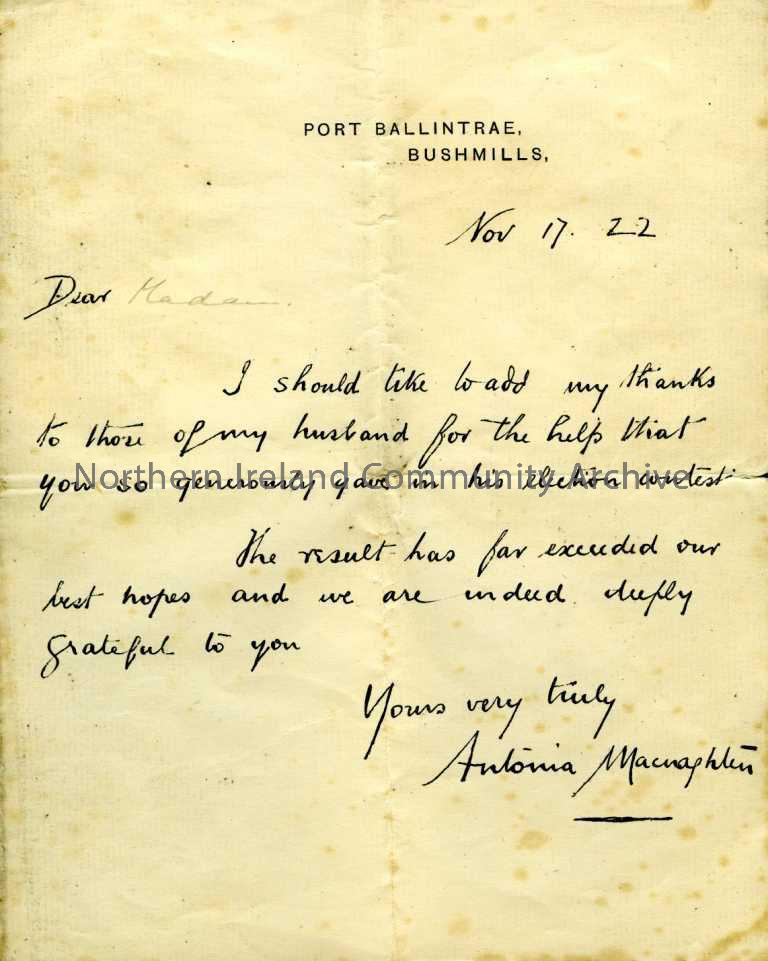 PORT BALLINTRAE,
BUSHMILLS,
Nov 17. 22
Dear Madam.
I should like to add my thanks
to those of my husband for the help that
you so generously gave in his election contest
Northern Ireland Community Archive
The result has far exceeded our
best hopes and we are indeed deeply
grateful to you
Yours very truly
Antonia Macnaghten